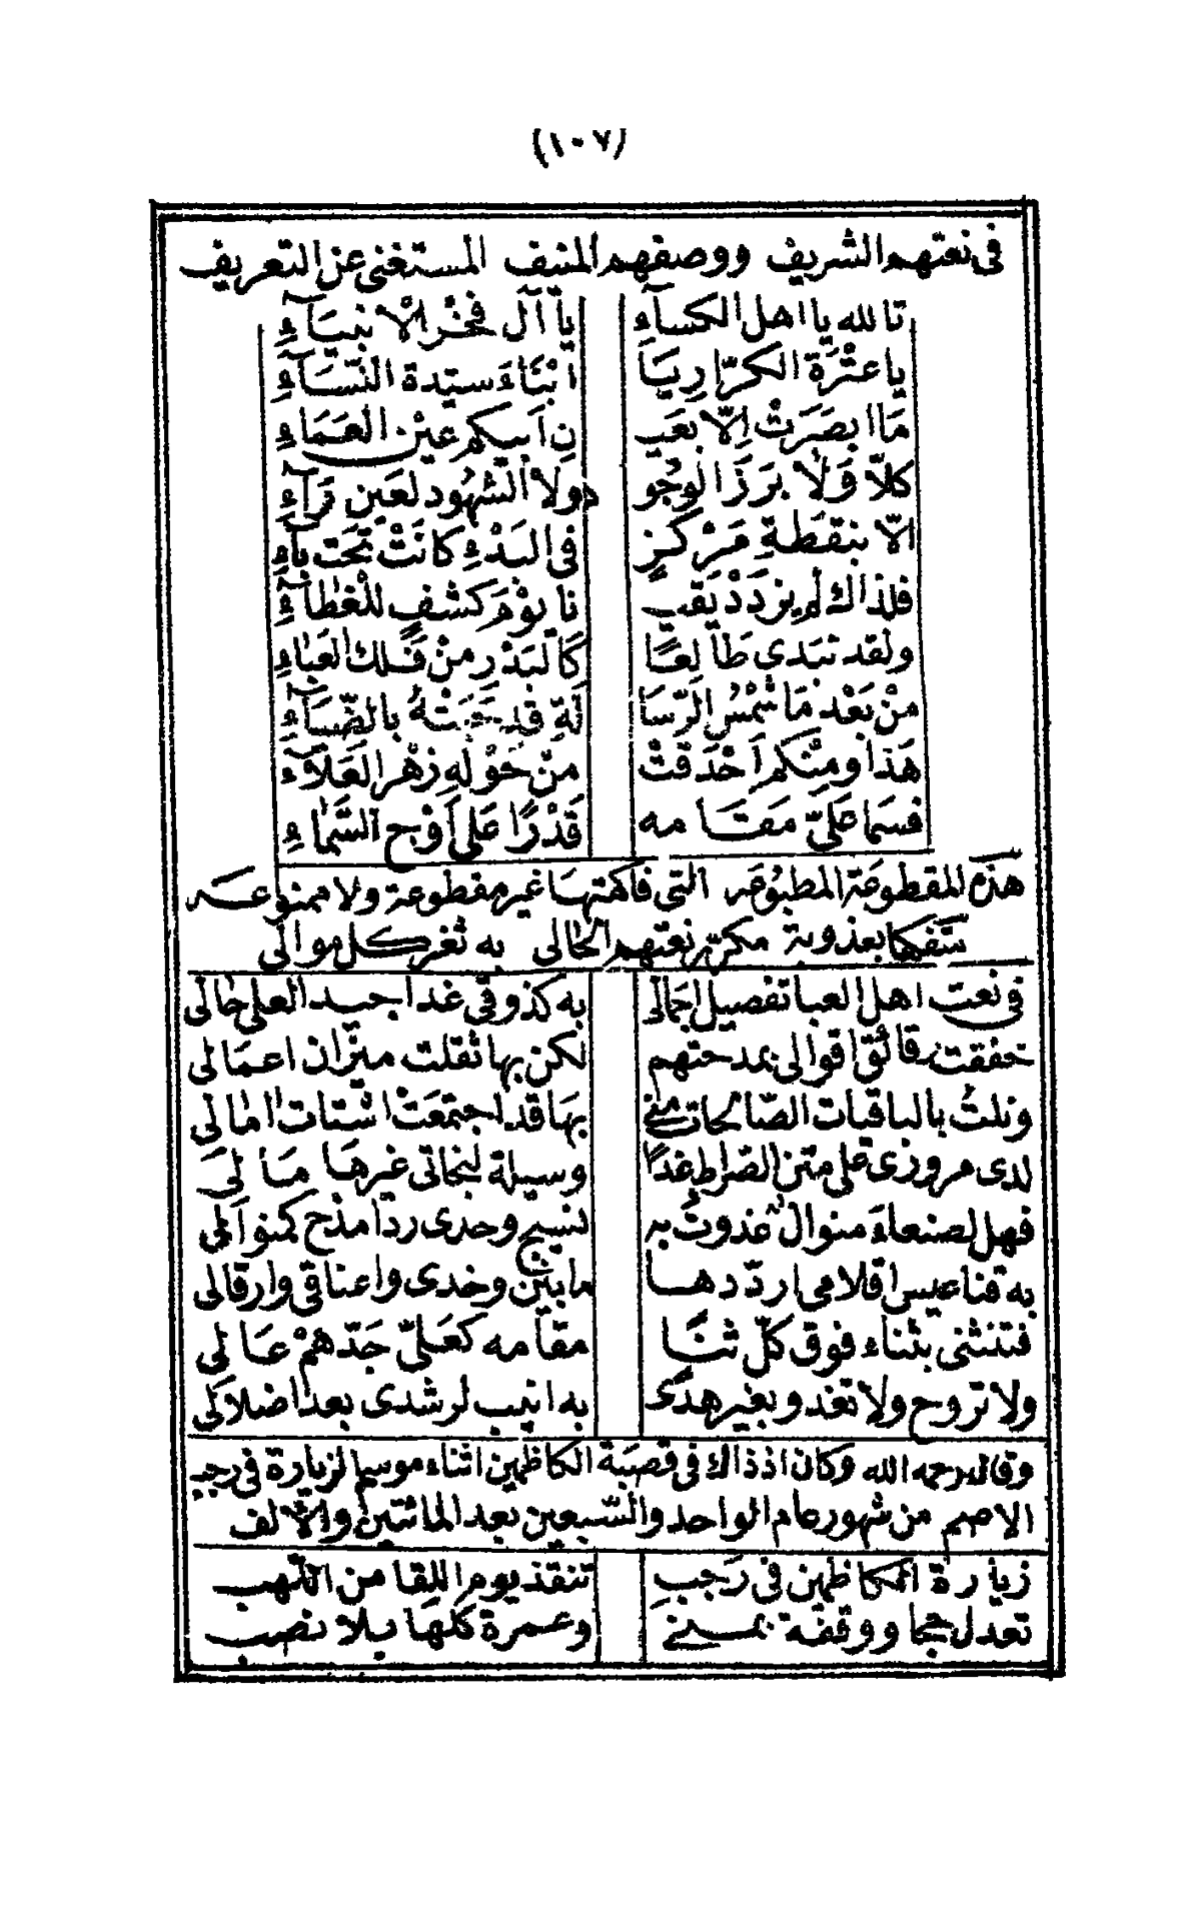 (١٠٧)
فى نعتهم الشريف ووصفهم المنيف المستغنى عن التعريف
تالله يا اهل الكسآءِ يا آل فخْر الانبيَآءِ
يا عتْرَة الكرّارِيَا ابْنَاءَ سيّدة النّسَآءِ
مَا ابصَرَتْ اِلّا بعَيـ نِ اَبيكم عيْن العَمَاءِ
كلّا وَلا برَزَ الوجُو دولا الشهُود لعَين رَآءِ
الّا بنقطةِ مَرْكزٍ فى البَدْءِ كانَتْ تحَت بآءِ
فلذاك لم يزدَدْ يَقيـ نا يوْمَ كشفٍ للغطآءِ
ولقد تبَدى طَالعًا كَالبَدْرِ منْ فَلك العَبٰاءِ
منْ بَعْد مَا شمْسُ الرّسَا لَةِ قد بالضّيَآءِ
هَذا ومنْكم اَحْدقتْ منْ حَوْلهِ زهْر العَلآءِ
فسَما عَليّ مقَامه قَدْرًا عَلى اَوْج السَّمٰاءِ
هذه المقطوعة المطبوعه التى فاكهتهَا غير مقطوعة ولا ممنوعه
يتفكها بعذوبة مكرّر نعتهم الحالى به ثغر كل موالى
فى نعت اهل العبا تفصيل اجمالى به كذوقى غدا جيد العلى حٰالى
خفقت زقائق اقوالى بمدحتهم لكن بها ثقلت ميزان اعمَالى
ونلتُ بالباقيات الصّالحات منىً بهَا قد اجتمعَتْ اشتات اٰمٰالى
لدى مرورى على متن الصّراط غدًا وسيلة لنجاتى غيرهَا مَا لى
فهل لصنعاءَ منوال خذوتُ به لنسج وحدى ردّا مدْح كمنوالى
به قناعيس اقلامى ارددهــا مابين وخدى واعناقى وارقالى
فتنثنى بثناء فوق كلّ ثنًا مقَامه كعَلىّ جَدّهمْ عَالى
ولا تروح ولا تغدو بغير هدًى به انيب لرشدى بعد اضلالى
وقال رحمه الله وكان اذذاك فى قصَبة الكاظمين اثناء موسم الزيارة فى رجب
الاصم من شهور عام الواحد والسّبعين بعد المائتين والالف
زيارة الكاظمين فى رَجبِ تنقذ يوم اللقا من اللّهب
تعدل حجا ووقفة بمنىً وعمرة كلهَا بلا نصب